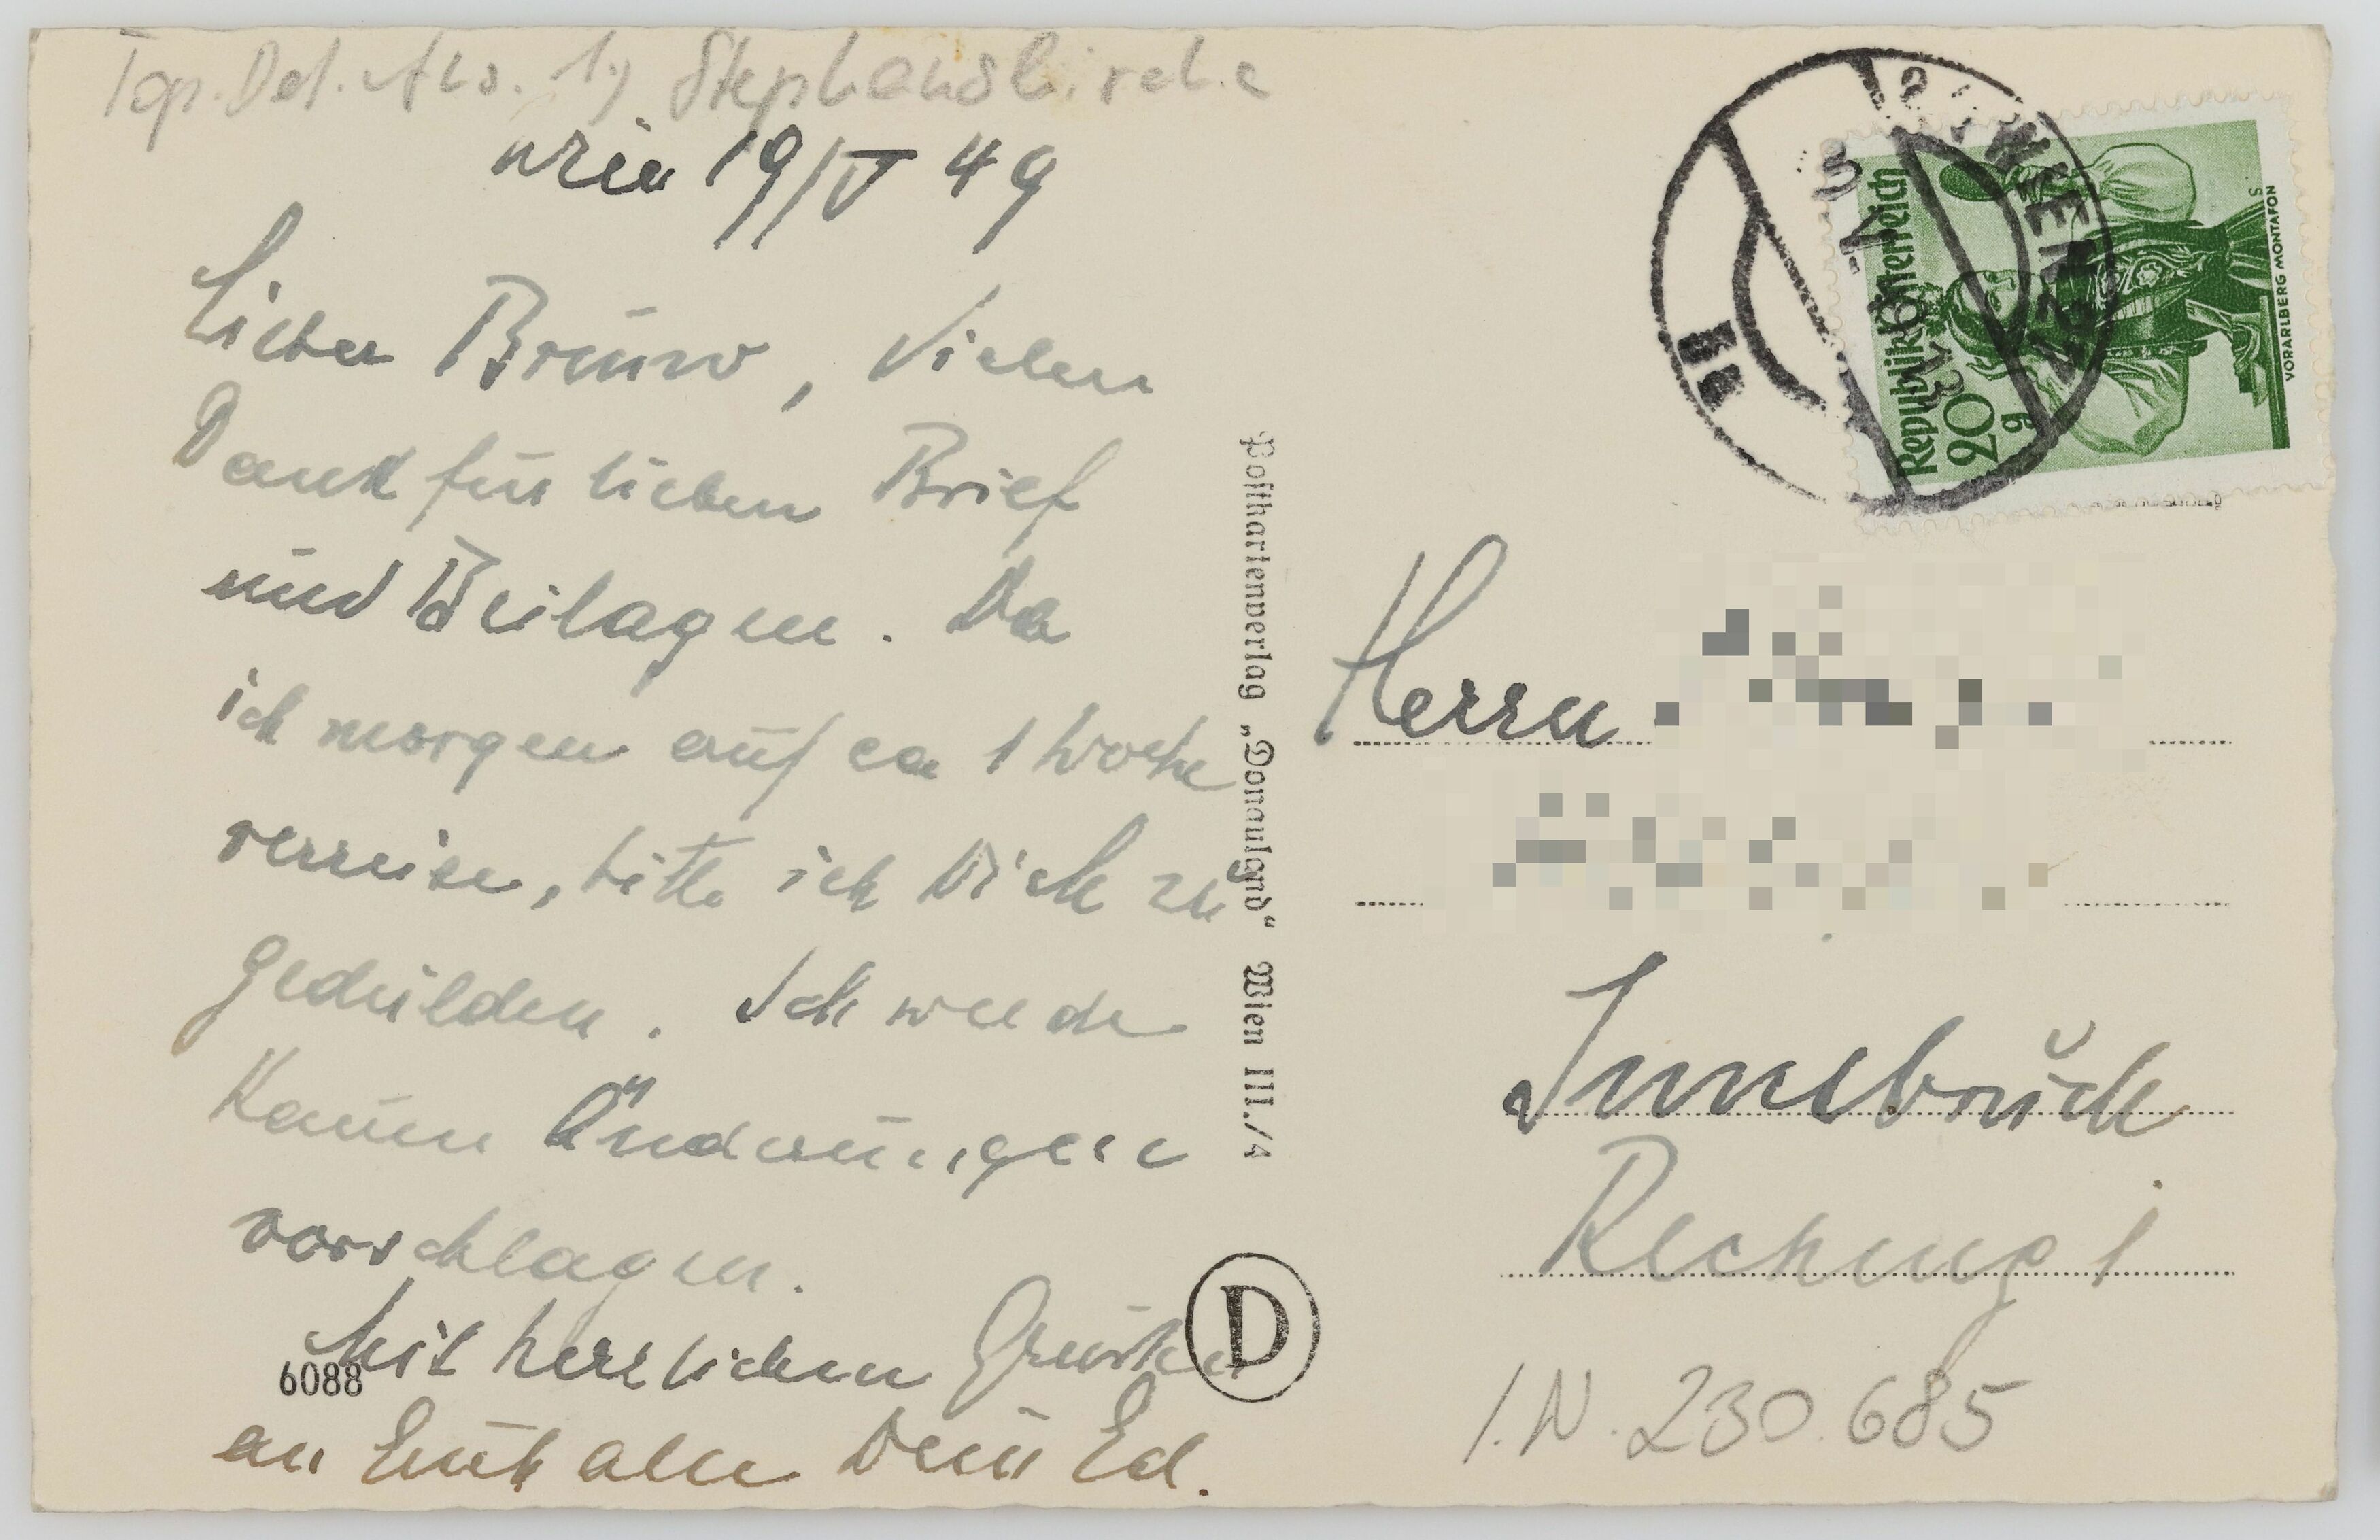 Top. Det. Abs. 1) Stephanskirche
Wien 19/V 49
Lieber Bruno, Vielen
Dank für lieben Brief
und Beilagen. Da
ich morgen auf ca 1 Woche
verreise, bitte ich Dich zu
gedulden. Ich werde
kaum Änderungen
vorschlagen.
Mit herzlichen Grüßen
an Euch alle Dein Ed.
6088
Postkartenverlag „Donauland“ Wien III./4
D
Republik Österreich
20 g
VORARLBERG MONTAFON
Herrn
Innsbruck
I.N. 230.685